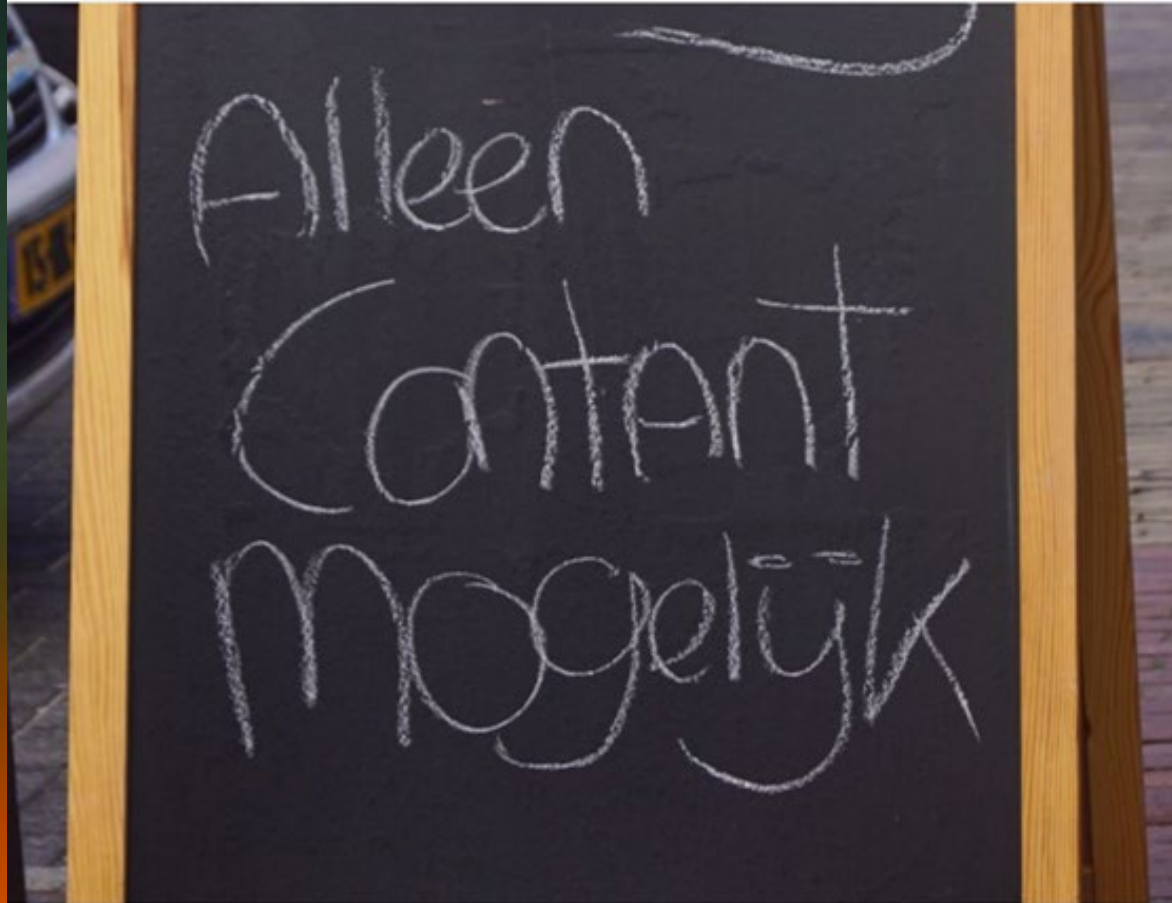 Alleen
Contant
Mogelijk